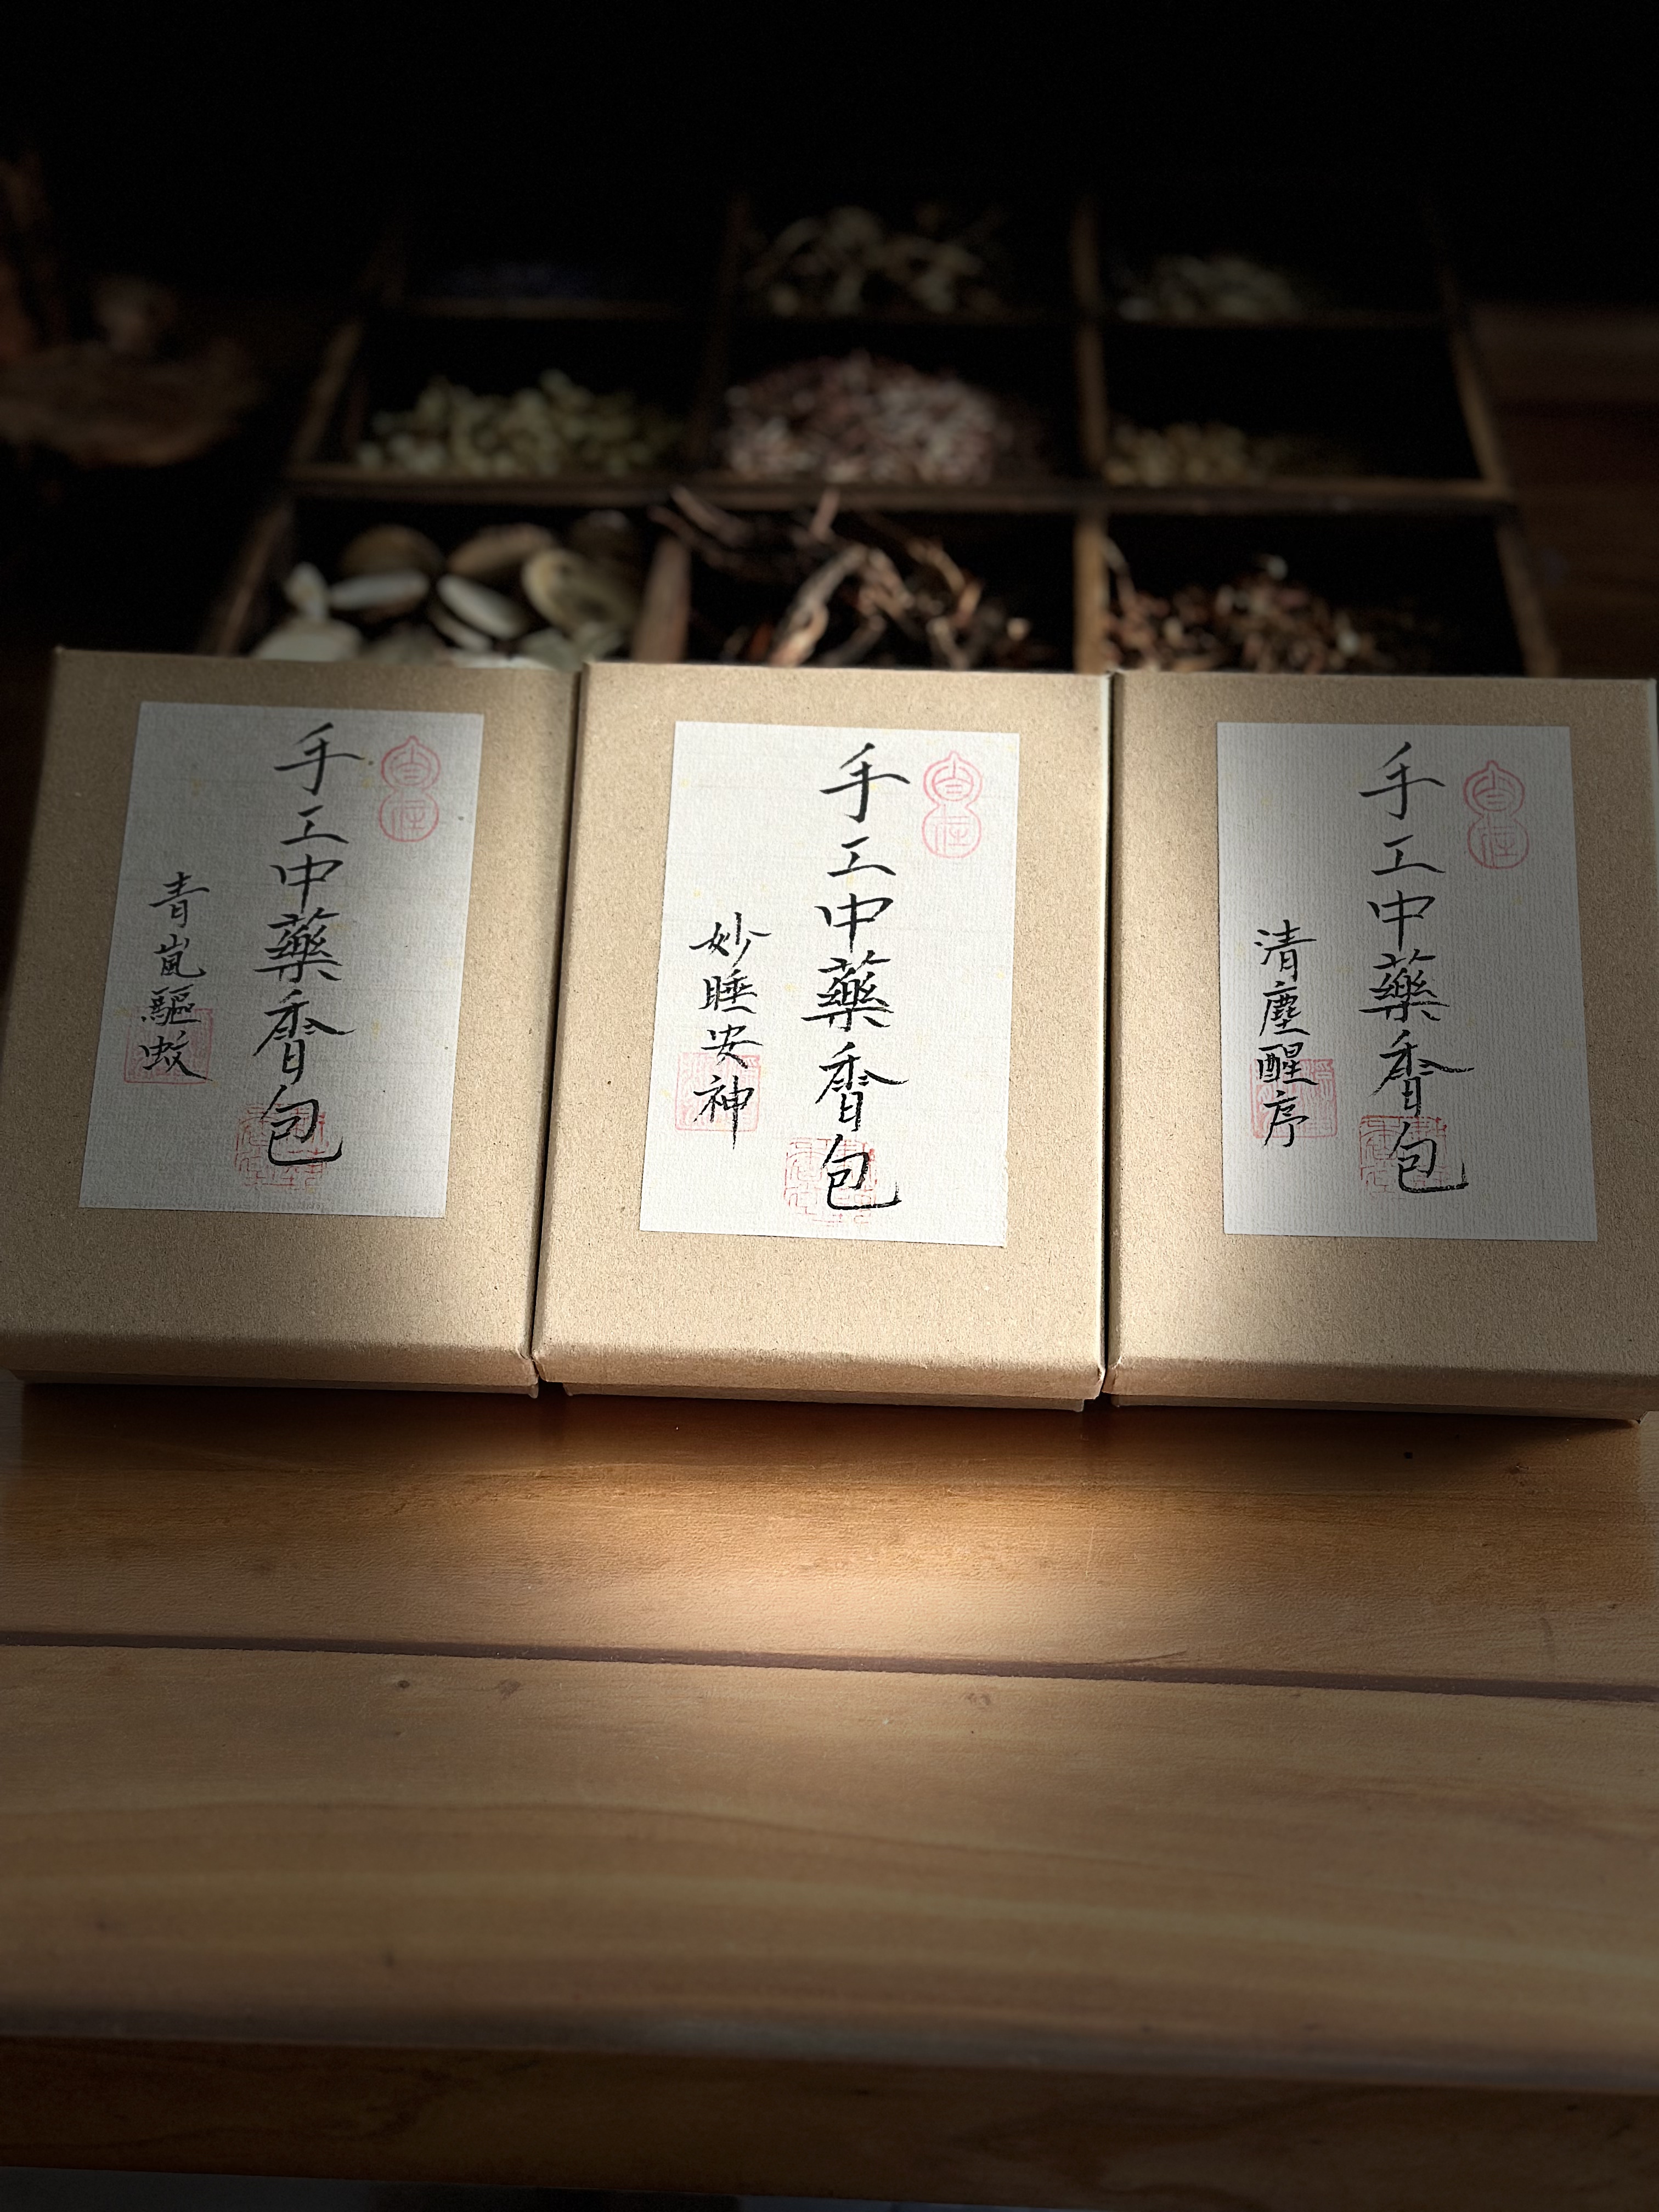 手工中藥香包
青嵐驅蚊
手工中藥香包
妙睡安神
手工中藥香包
清塵醒序